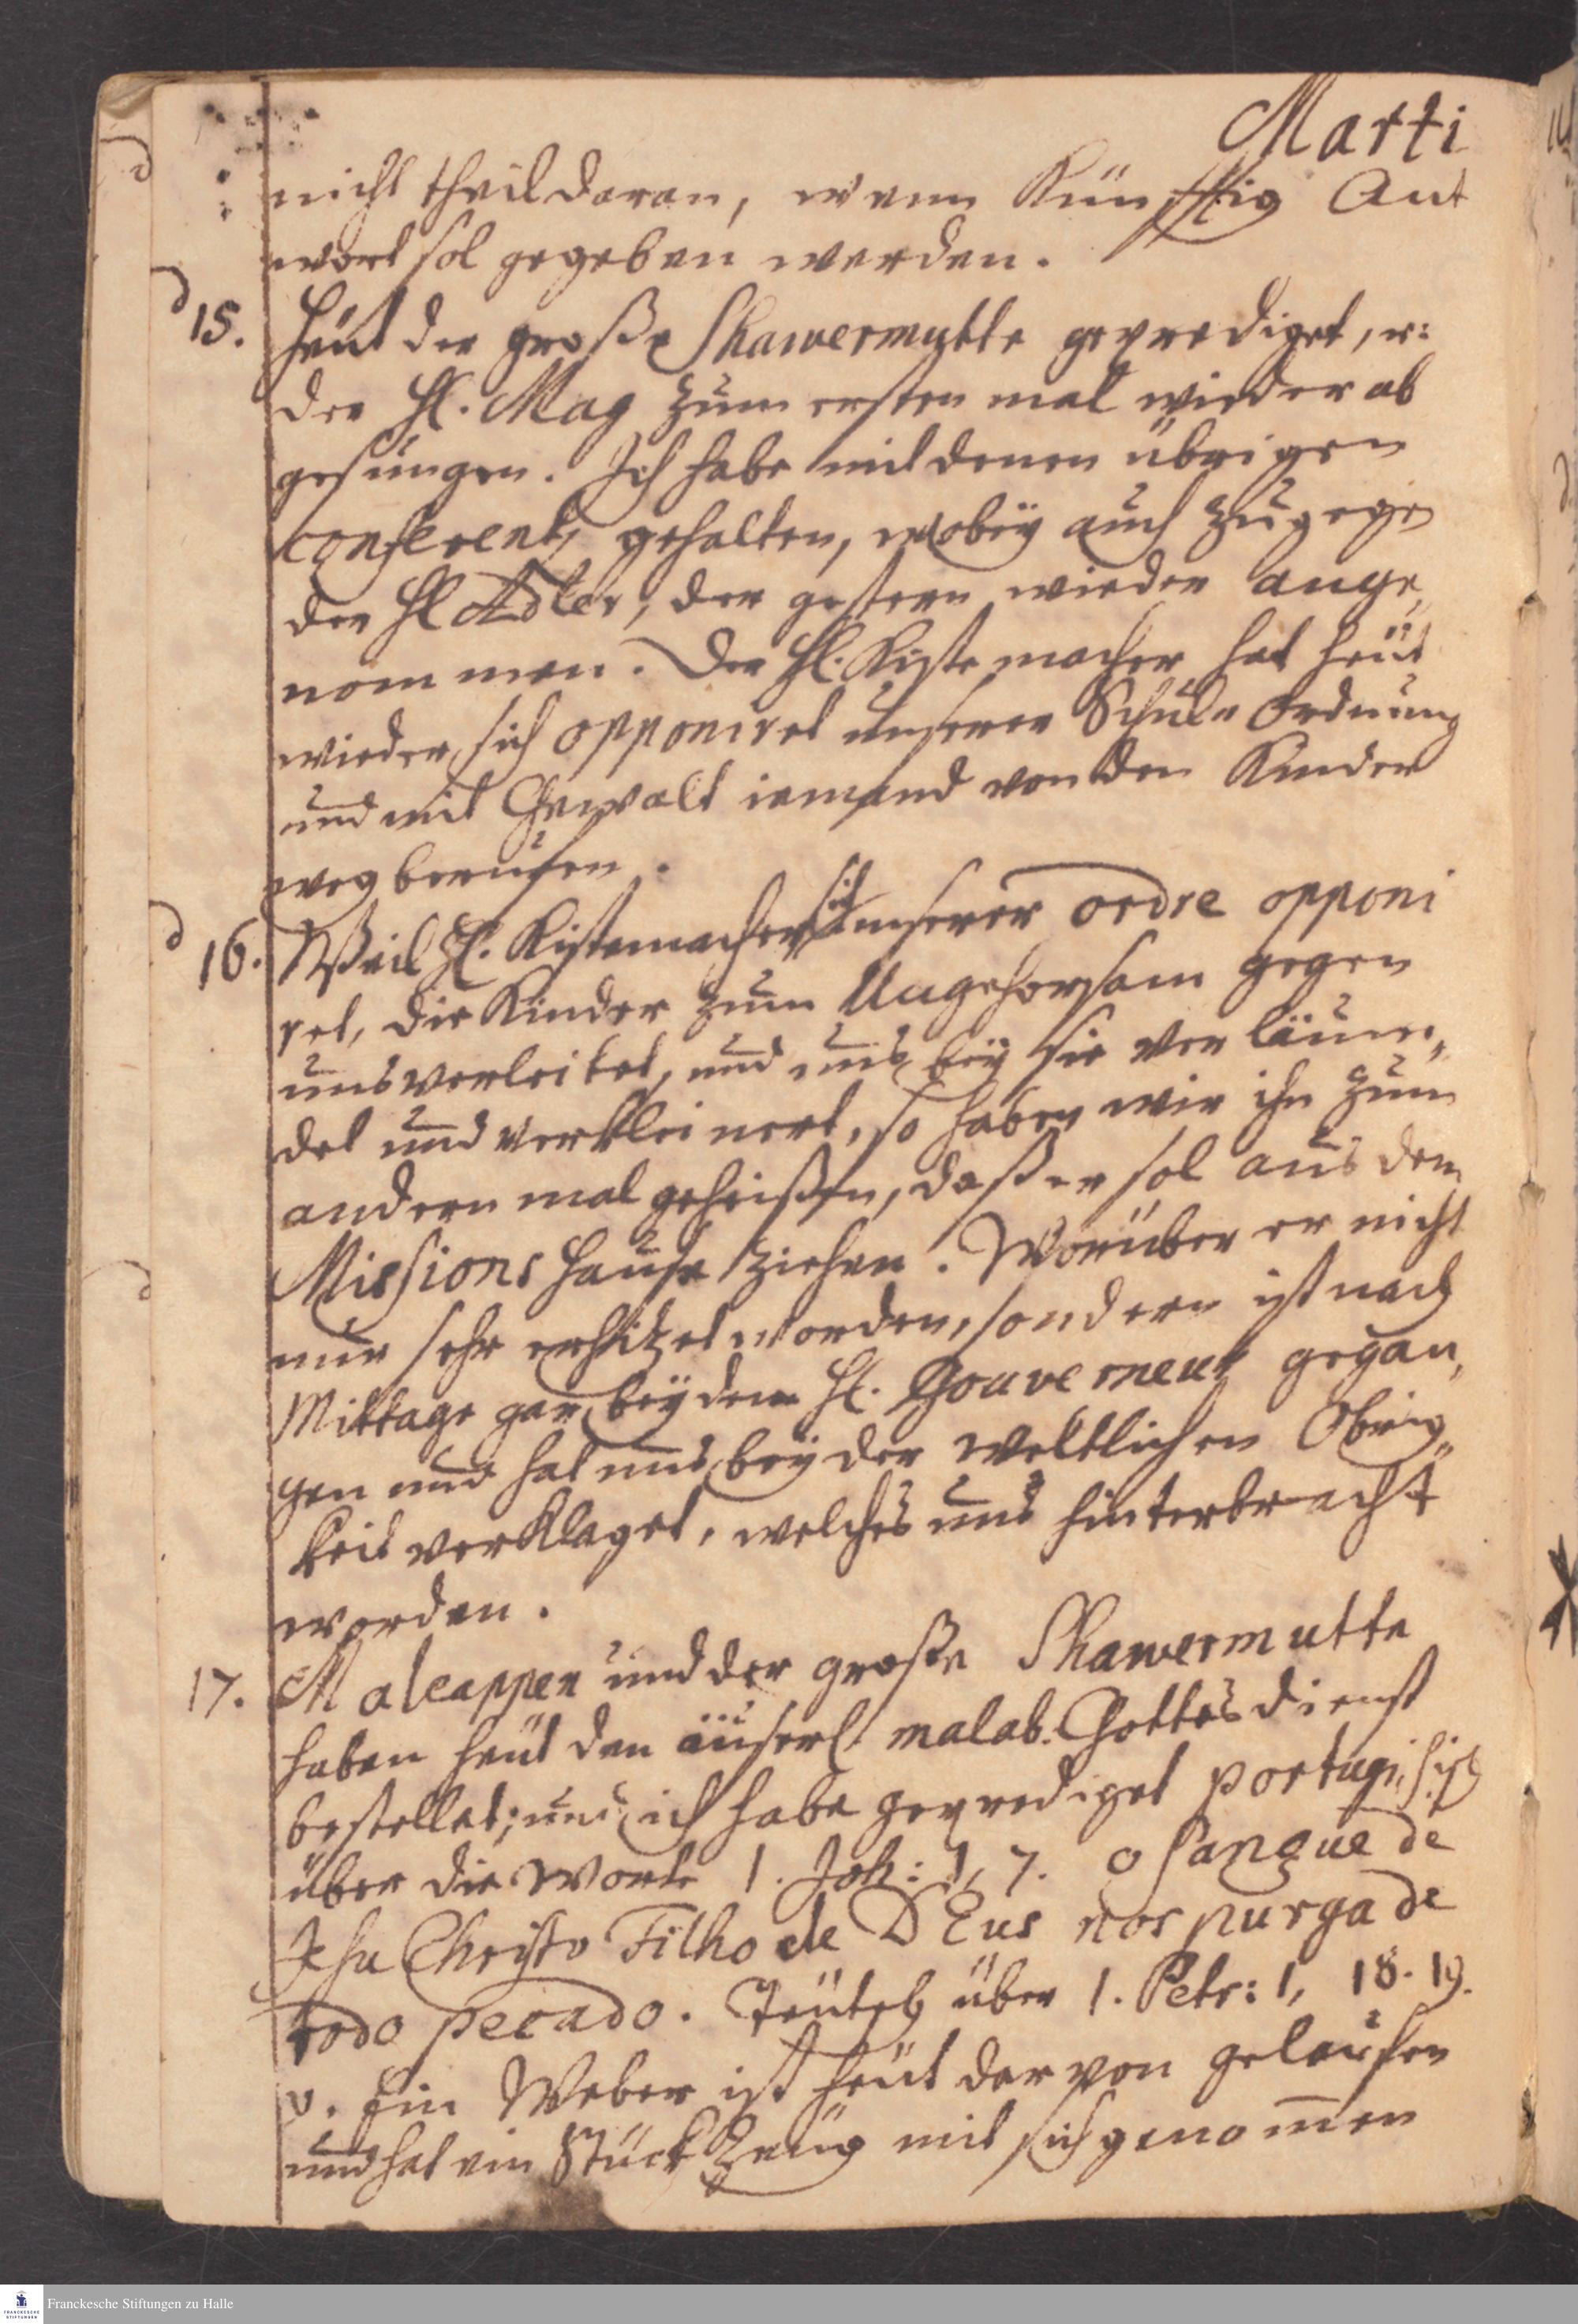 Marti
nicht theil daran, wenn Künfftig Ant
wort sol gegeben werden.
15. Heut der große Shawermutte geprediget, u:
der H. Mag zum ersten mal wieder ab
gesungen. Ich habe mit denen übrigen
conferentz gehalten, wobeÿ auch zugegen
der H Adler, der gestern wieder ange„
nommen. Der H. Kistemacher hat heüt
wieder sich opponiret unserer Schul Ordnung
und mit Gewalt iemand von den Kinder
weg beruffen.
16. Weil H. Kistemacher sich unserer ordre opponi
ret, die Kinder zum Ungehorsam gegen
uns verleitet, und uns beÿ sie verläum„
det und verkleinert, so haben wir ihn zum
andern mal geheißen, daß er sol aus dem
Missions Hause ziehen. Worüber er nicht
nur sehr erhitzet worden, sondern ist nach
Mittage gar beÿ dem H. Gouverneur gegan„
gen und hat uns beÿ der weltlichen Obrig„
keit verklaget, welches uns hinterbracht
worden.
17. Maleappen und der große Shawermutte
haben heüt den äüserl. malab. Gottesdienst
bestellet; und ich habe geprediget portugisisch
über die Worte 1. Joh: 1, 7. o sangue de
Jesu Christo Filho de DEus nos purga de
todo pecado. Teütsch über 1. Petr: 1, 18. 19.
v. Ein Weber ist heüt darvon gelauffen
und hat ein Stück Zeüg mit sich genom̅en
Franckesche Stiftungen zu Halle